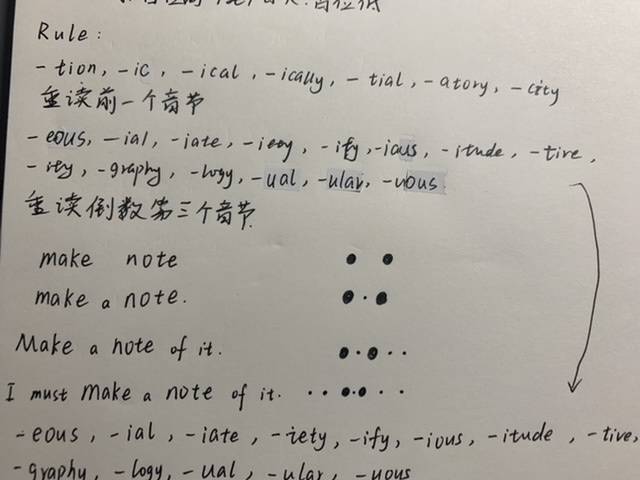 Rule:
-tion, -ic, -ical, -ically, -tial, -atory, -city
重读前一个音节
-eous, -ial, -iate, -iety, -ify, -ious, -itude, -tive,
-ity, -graphy, -logy, -ual, -ular, -uous
重读倒数第三个音节.
make note
make a note.
Make a note of it.
I must make a note of it.
-eous, -ial, -iate, -iety, -ify, -ious, -itude, -tive,
-graphy, -logy, -ual, -ular, -uous